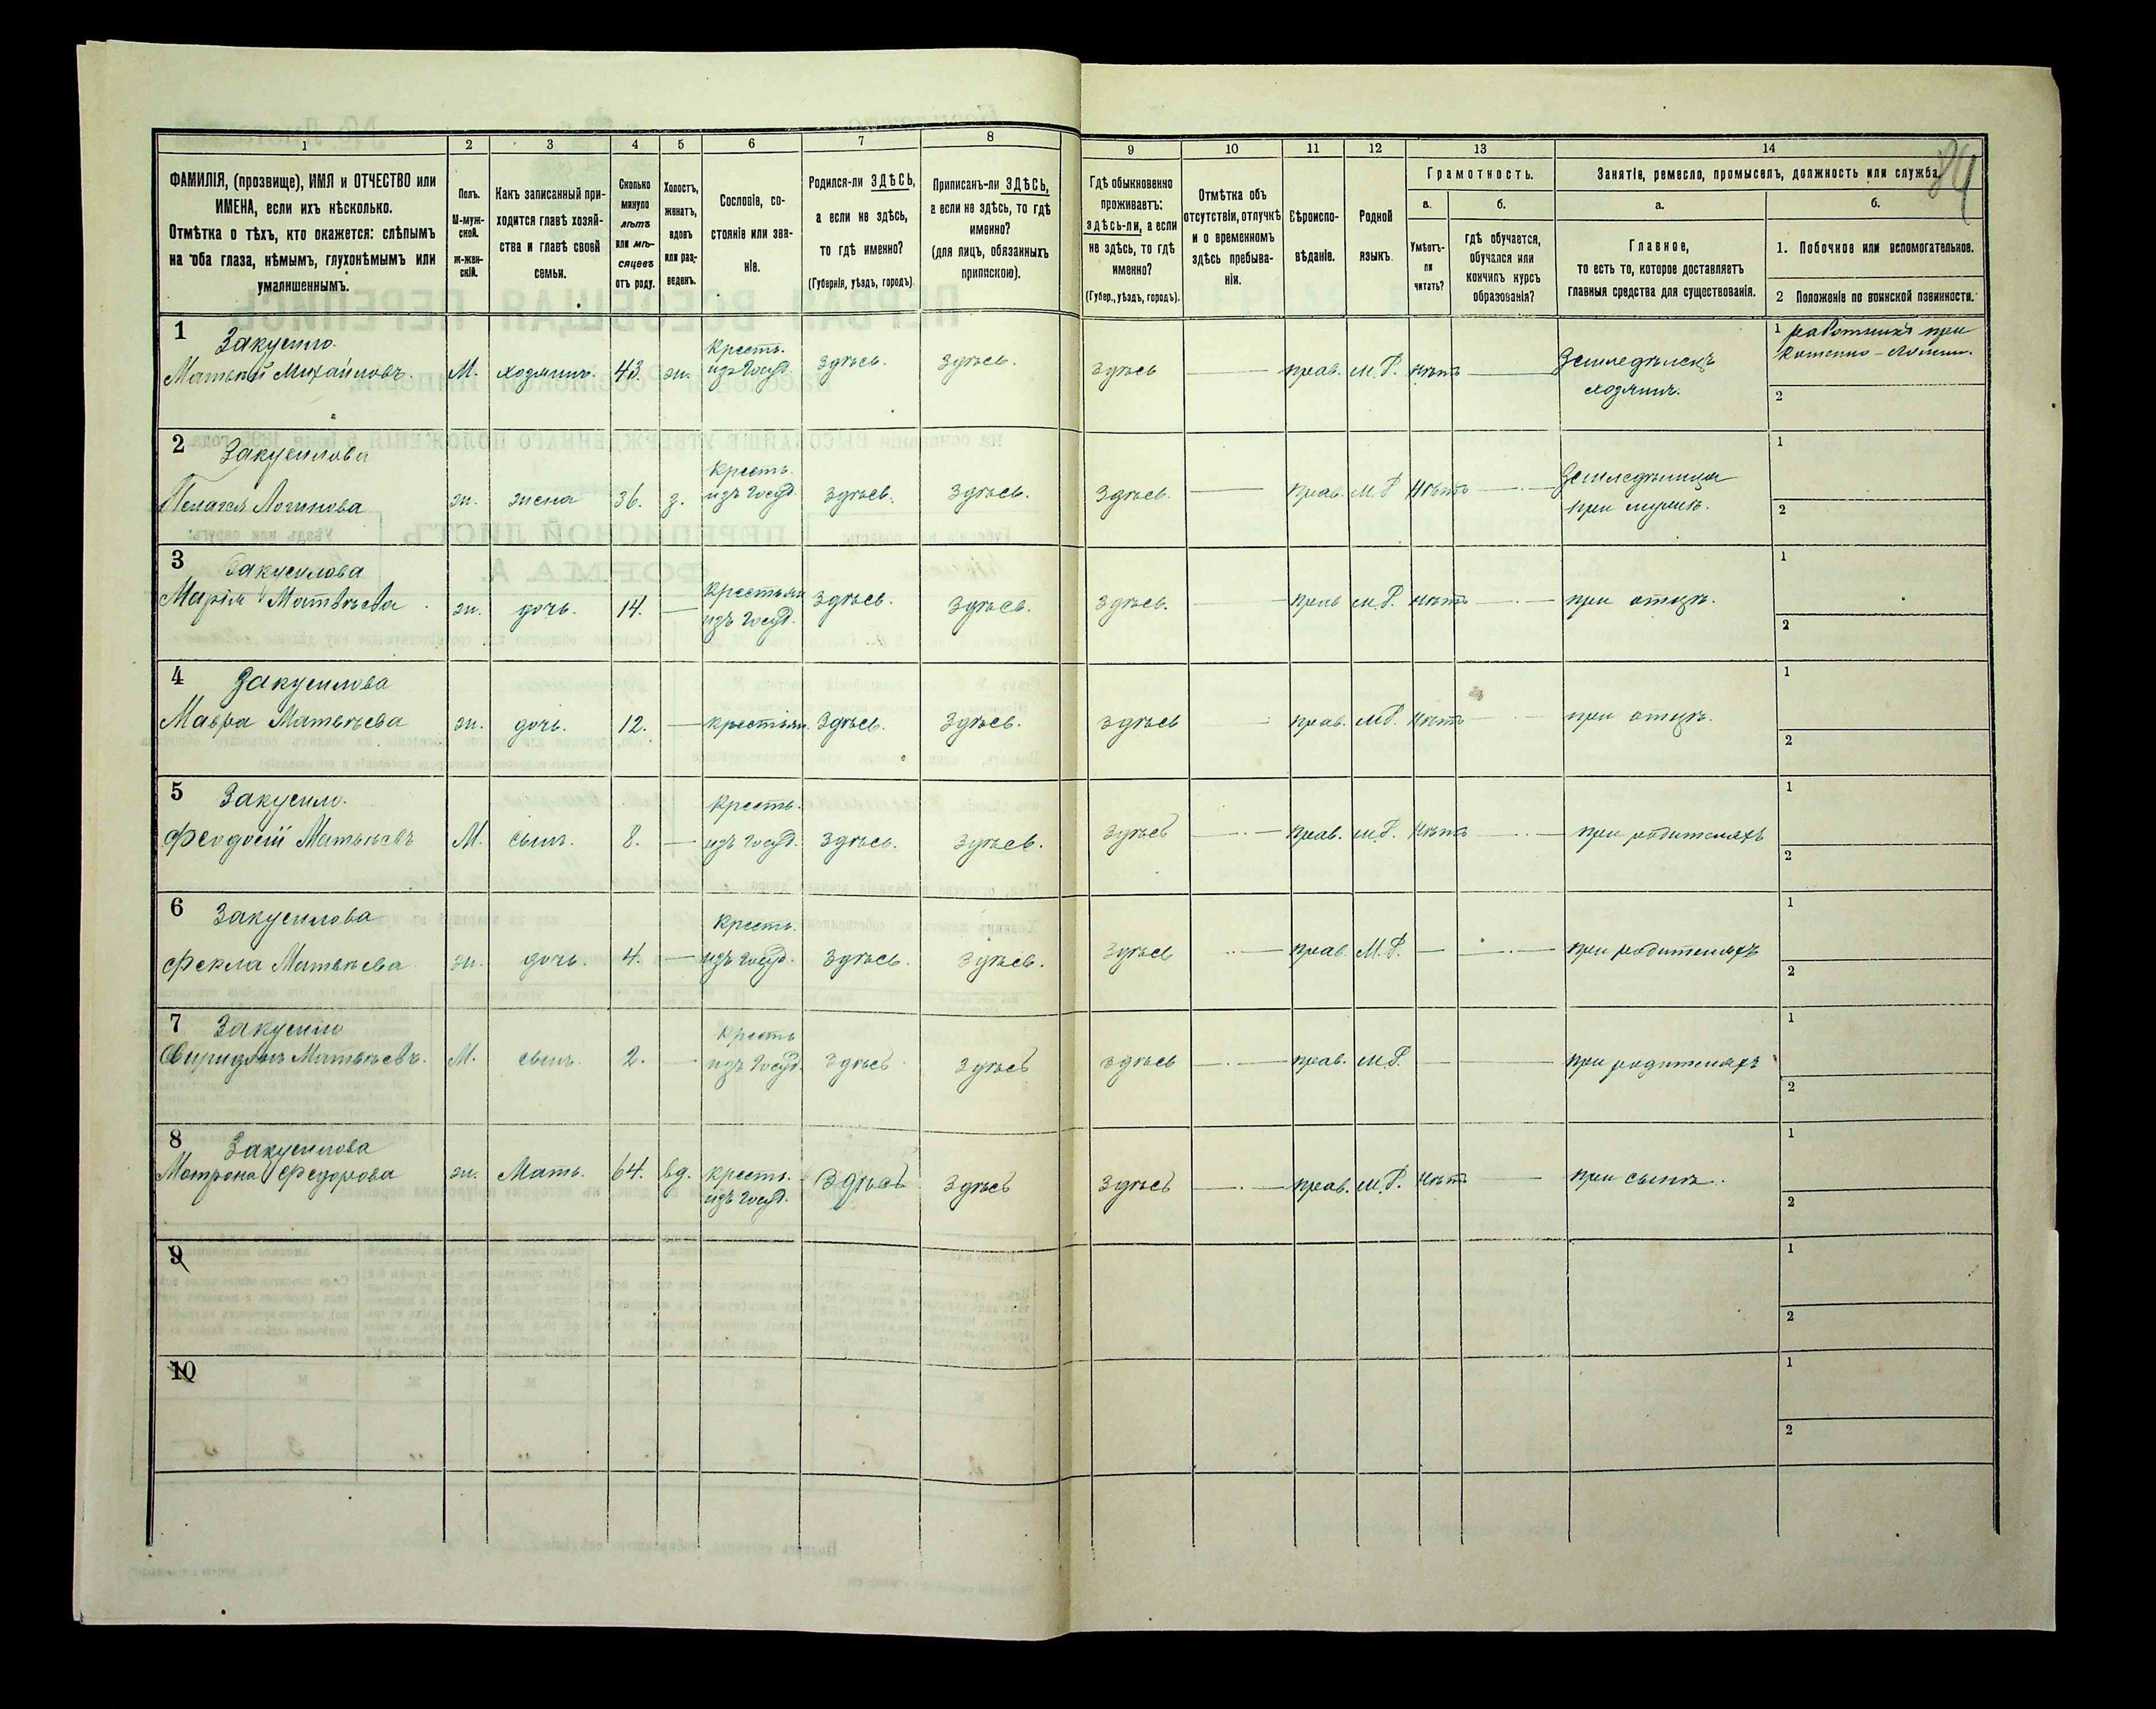 84
1 2 3 4 5 6 7 8 9 10 11 12 13 14
ФАМИЛІЯ, (прозвище), ИМЯ и ОТЧЕСТВО или
ИМЕНА, если ихъ нѣсколько.
Отмѣтка о тѣхъ, кто окажется: слѣпымъ
на оба глаза, нѣмымъ, глухонѣмымъ или
умалишеннымъ.
Полъ.
М-муж-
ской.
Ж-жен-
скій.
Какъ записанный при-
ходится главѣ хозяй-
ства и главѣ своей
семьи.
Сколько
минуло
лѣтъ
или мѣ-
сяцевъ
отъ роду.
Холостъ,
женатъ,
вдовъ
или раз-
веденъ.
Сословіе, со-
стояніе или зва-
ніе.
Родился-ли ЗДѢСЬ,
а если не здѣсь,
то гдѣ именно?
(Губернія, уѣздъ, городъ).
Приписанъ-ли ЗДѢСЬ,
а если не здѣсь, то гдѣ
именно?
(для лицъ, обязанныхъ
припискою).
Гдѣ обыкновенно
проживаетъ:
здѣсь-ли, а если
не здѣсь, то гдѣ
именно?
(Губер., уѣздъ, городъ).
Отмѣтка объ
отсутствіи, отлучкѣ
и о временномъ
здѣсь пребыва-
ніи.
Вѣроиспо-
вѣданіе.
Родной
языкъ.
Грамотность.
а.
Умѣетъ-
ли
читать?
б.
гдѣ обучается,
обучался или
кончилъ курсъ
образованія?
Занятіе, ремесло, промыселъ, должность или служба.
а.
Главное,
то есть то, которое доставляетъ
главныя средства для существованія.
б.
1. Побочное или вспомогательное.
2 Положеніе по воинской повинности.
1 Закусило.
Матвѣй Михайловъ. М. хозяинъ. 43. ж. Кресть. изъ Госуд. Здѣсь. Здѣсь. Здѣсь — прав. М.Р. нѣтъ — Земледѣлецъ
хозяинъ.
1 работникъ при
2
2 Закусилова
Пелагея Логинова ж. жена 36. з. Кресть. изъ Госуд. Здѣсь. Здѣсь. Здѣсь. — прав. М.Р. Нѣтъ — Земледѣлица
при мужѣ.
1
2
3 Закусилова
Марія Матвѣева ж. дочь. 14. — Крестьян изъ Госуд. Здѣсь. Здѣсь. Здѣсь. — прав М.Р. нѣтъ — при отцѣ.
1
2
4 Закусилова
Мавра Матвѣева ж. дочь. 12. — крестьян. Здѣсь. Здѣсь. Здѣсь — прав. М.Р. Нѣтъ — при отцѣ.
1
2
5 Закусило.
Феодосій Матвѣевъ М. сынъ. 8. — Кресть. изъ Госуд. Здѣсь. Здѣсь. Здѣсь — прав. М.Р. Нѣтъ — при родителяхъ
1
2
6 Закусилова
Фекла Матвѣева ж. дочь. 4. — Кресть. изъ Госуд. Здѣсь. Здѣсь. Здѣсь — прав. М.Р. — — при родителяхъ
1
2
7 Закусило
Свиридонъ Матвѣевъ. М. сынъ. 2. — Кресть изъ Госуд. Здѣсь Здѣсь Здѣсь — прав. М.Р. — — при родителяхъ
1
2
8 Закусилова
Матрона Федорова ж. Мать. 64. вд. Кресть. изъ Госуд. Здѣсь Здѣсь Здѣсь — прав. М.Р. Нѣтъ — при сынѣ.
1
2
9
1
2
10
1
2